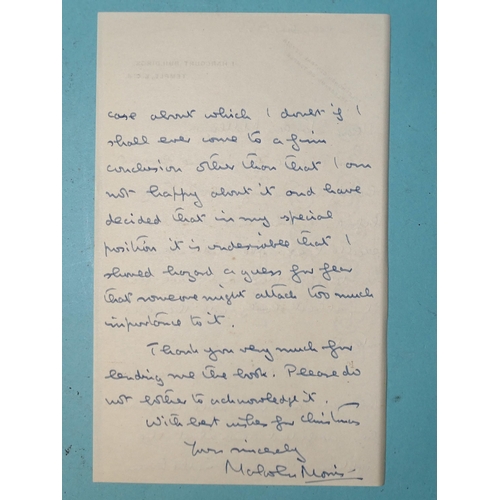 case about which I doubt if I
shall ever come to a firm
conclusion other than that I am
not happy about it and have
decided that in my special
position it is undesirable that I
should hazard a guess for fear
that someone might attach too much
importance to it.
Thank you very much for
lending me the book. Please do
not bother to acknowledge it.
With best wishes for Christmas
Yours sincerely
Malcolm Morris